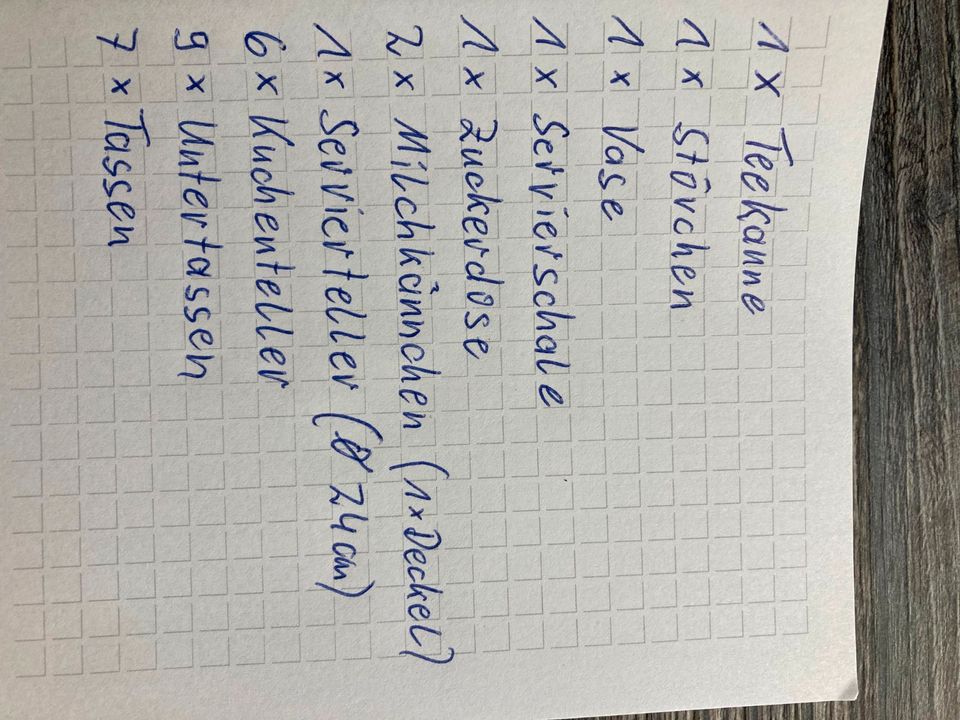 1 x Teekanne
1 x Stövchen
1 x Vase
1 x Servierschale
1 x Zuckerdose
2 x Milchkännchen (1x Deckel)
1 x Servierteller (Ø 24 cm)
6 x Kuchenteller
9 x Untertassen
7 x Tassen